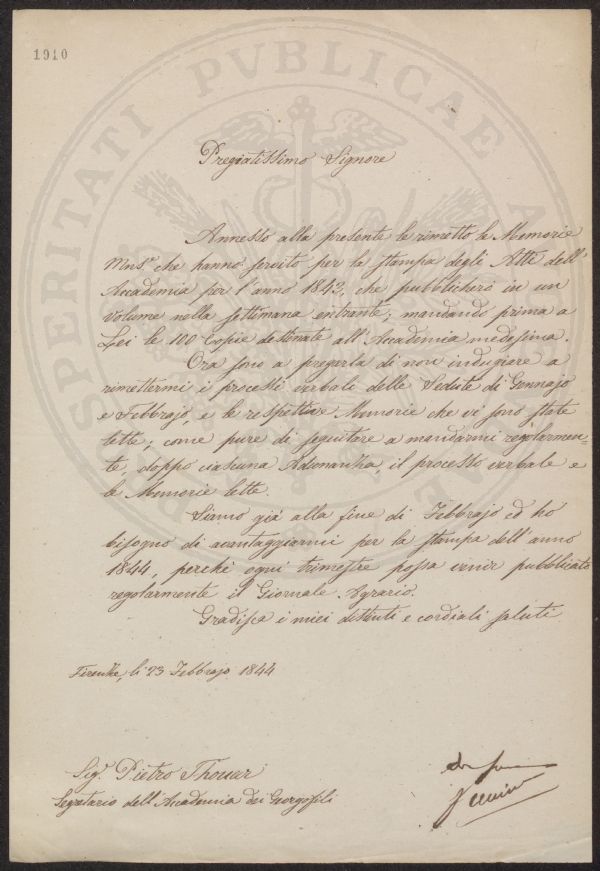 1910
PROSPERITATI PVBLICAE A
Pregiatissimo Signore
Annesso alla presente le rimetto le Memorie
Mns.e che hanno servito per la Stampa degli Atti dell'
Accademia per l'anno 1843, che pubblicherò in un
Volume nella settimana entrante; mandando prima a
Lei le 100 Copie destinate all'Accademia medesima.
Ora sono a pregarla di non indugiare a
rimettermi i processi verbali delle Sedute di Gennajo
e Febbrajo, e le respettive Memorie che vi sono state
lette; come pure di seguitare a mandarmi regolarmen=
te, doppo ciascuna Adunanza, il processo verbale e
le Memorie lette.
Siamo già alla fine di Febbrajo ed hò
bisogno di avantaggiarmi per la Stampa dell'anno
1844, perchè ogni trimestre possa venir pubblicato
regolarmente il Giornale Agrario.
Gradisca i miei distinti e cordiali saluti
Firenze, li 23 Febbrajo 1844
Sig.r Pietro Thouar
Segretario dell'Accademia dei Georgofili